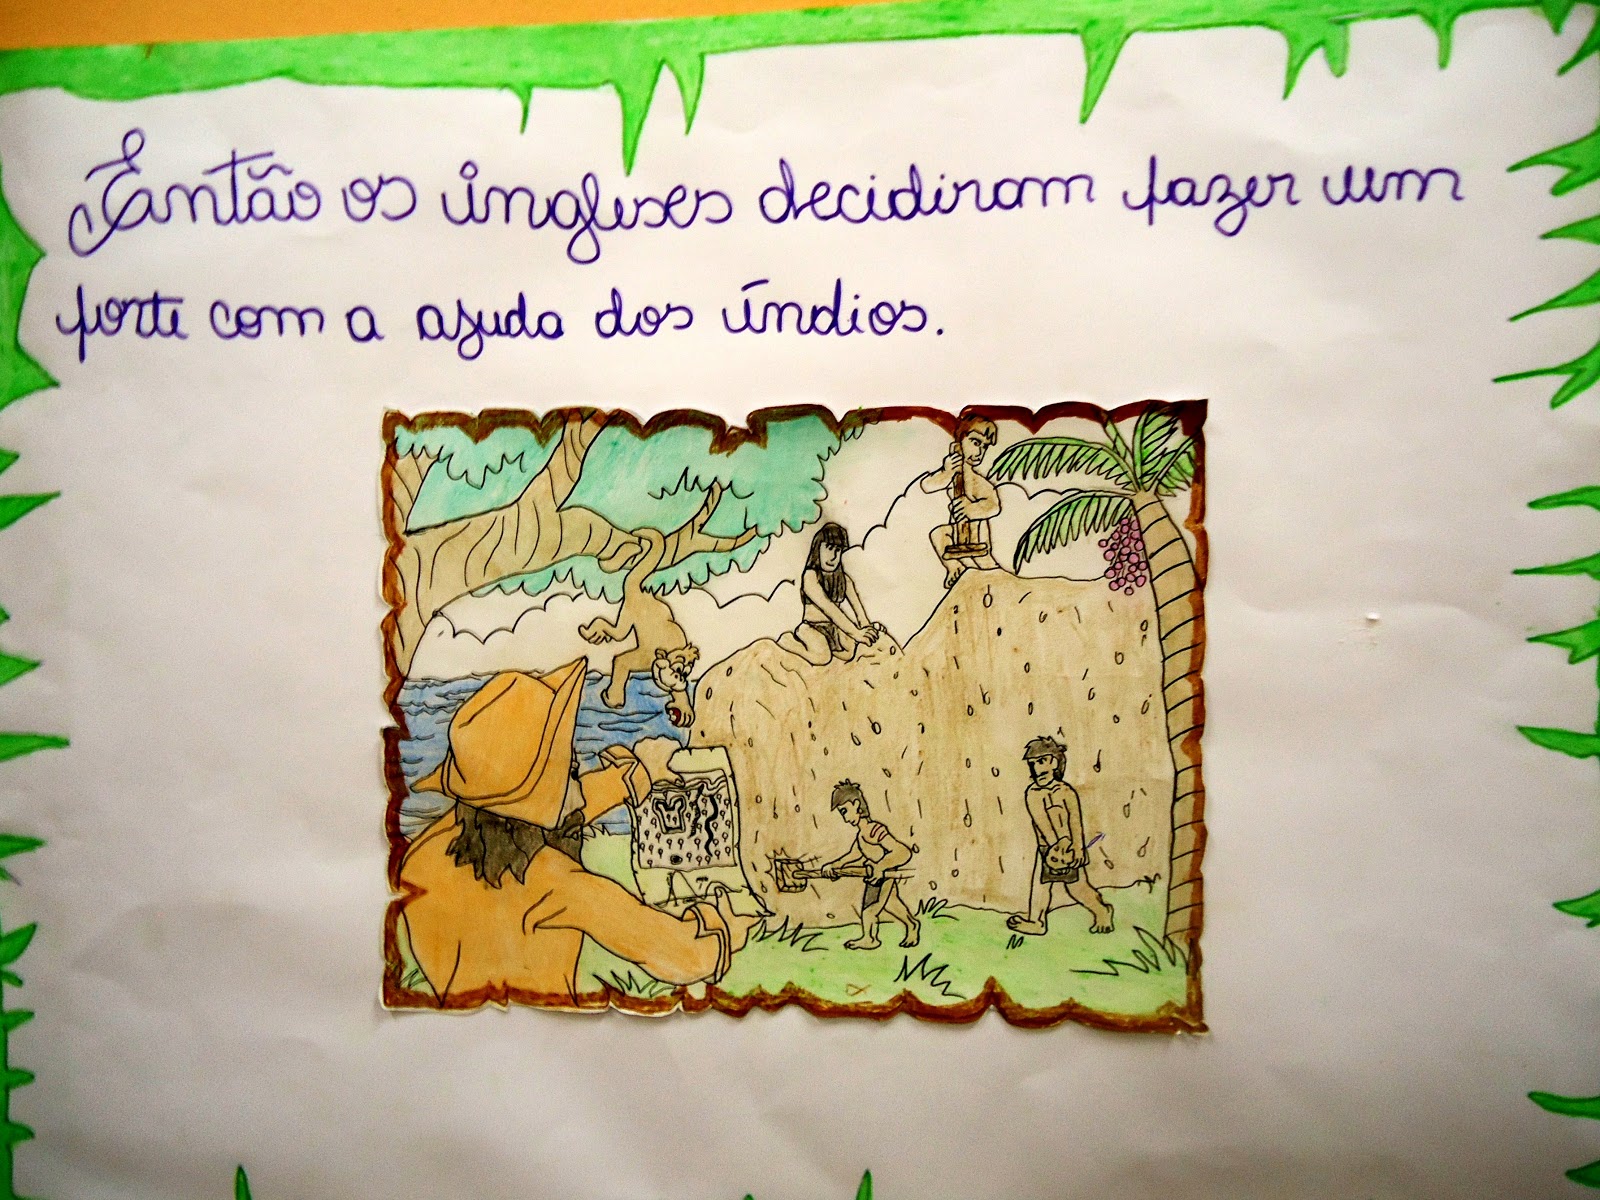 Então os ingleses decidiram fazer um
forte com a ajuda dos índios.